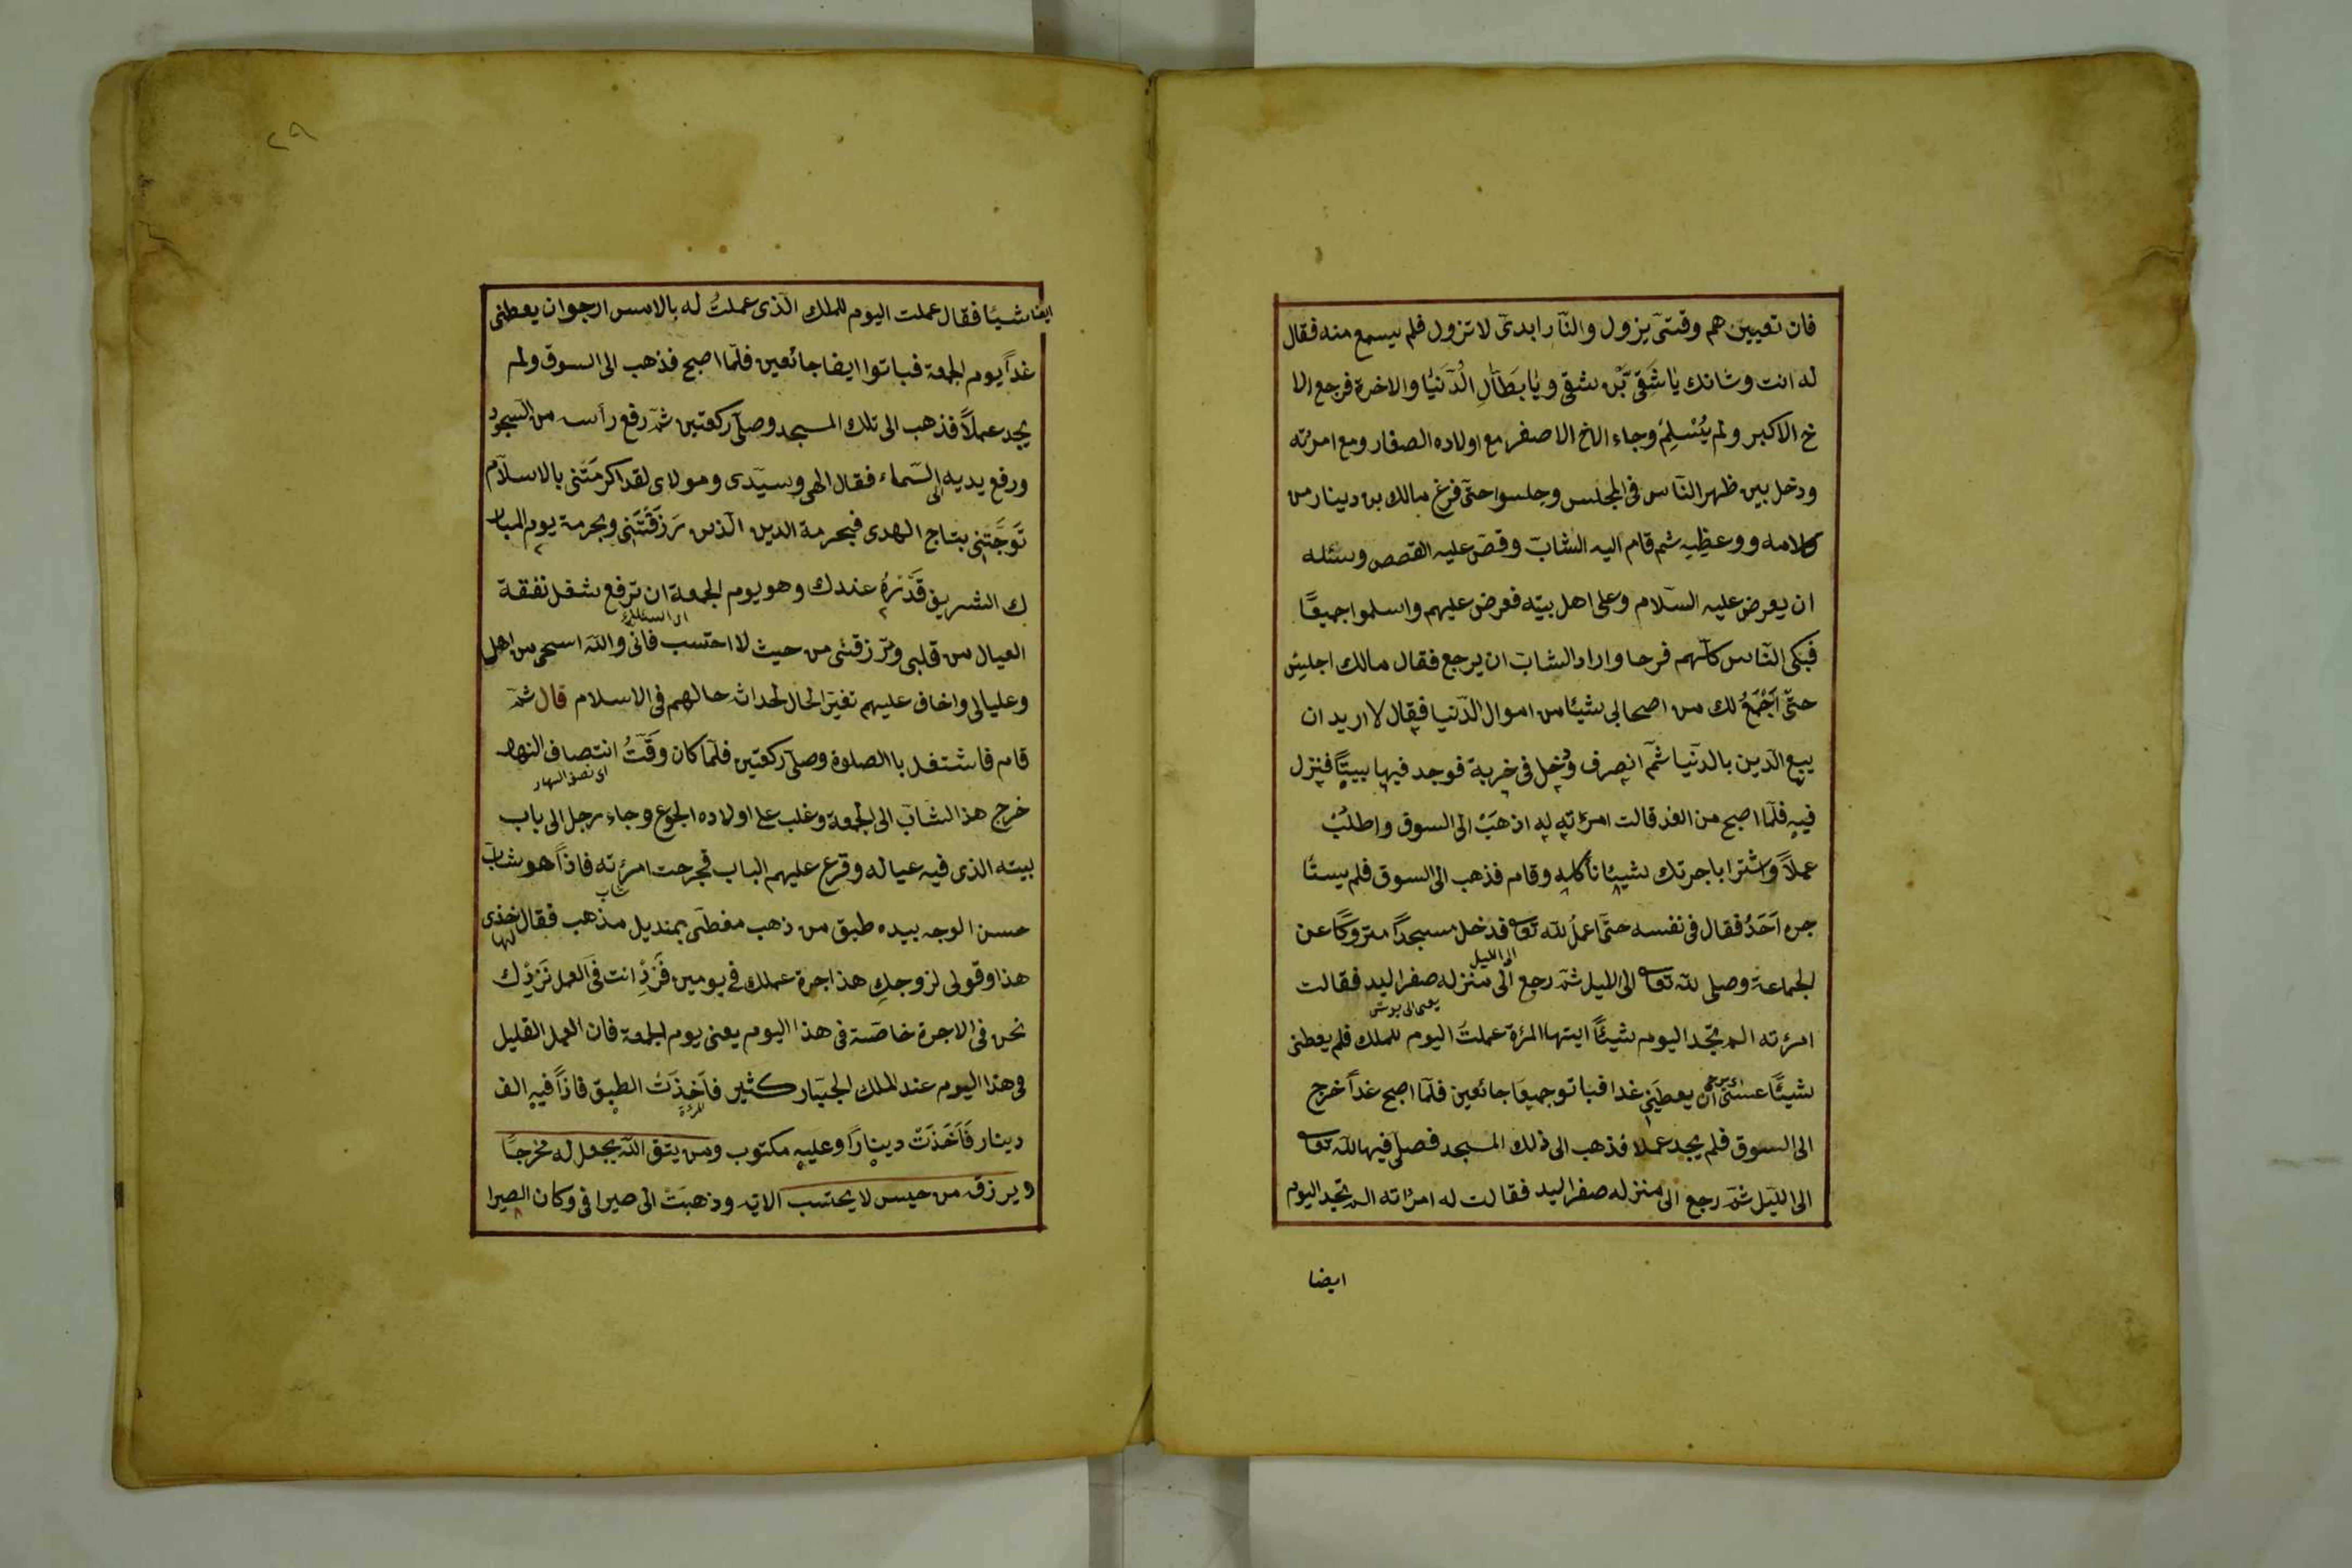 فان تعيين هم وقتىّ يزول والنّار ابدىّ لا تزول فلم يسمع منه فقال
له انت وشانك يا شَقىّ بْن شقى ويا بَطّالِ الْدّنيَا والاخرة فرجع الا
خ الاكبر ولم يُسْلِمْ وجاء الاخ الاصغر مع اولاده الصغار ومع امرئته
ودخل بين ظهر النّاس فى المجلس وجلسوا حتّى فرغ مالك بن دينار من
كلامه ووعظِيِه ثم قام اليه الشابّ وقصّ عليه القصص وسئله
ان يعرض عليه السّلام وعلى اهل بيته فعرض عليهم واسلموا جميعًا
فبكى النّاس كلّهم فرحا واراد الشابّ ان يرجع فقال مالك اجلِسْ
حتّى اَجْمَعُ لك من اصحابى شيئا من اموال الدّنيا فقال لا اريد ان
يبيع الدّين بالدّنيا ثمّ انصرف ودخل فى خربة فوجد فيها بيتًا فنزل
فيه فلمّا اصبح من الغد قالت امرئته له اذهَبْ الى السوق واطلبْ
عملاً واشترا باجرتك شيئا نأكله وقام فذهب الى السوق فلم يستأ
جره اَحَدُ فقال فى نفسه حتّى اعملُ للّه تعا فدخل مسجداً متروكًا عن
الجماعة وصلى للّه تعا الى الليل ثمّ رجع الى منزله صفر اليد فقالت
الى الليل
امرئته الم تجد اليوم شيئًا ايتها المرة عملتُ اليوم للملك فلم يعطنى
يعنى الى بوش
شيئًا عسىٰ ان يعطَينى غدا فباتو جميعَا جائعين فلمّا اصبح غداً خرج
الى السوق فلم يجد عملا فذهب الى ذلك المسجد فصلّى فيها للّه تعا
الى اللّيل ثمّ رجع الى منزله صفر اليد فقالت له امرئته الم تجد اليوم
ايضا
٢٩
ايضا شيئا فقال عملت اليوم للملك الّذى عملتُ له بالامس ارجو ان يعطنى
غداً يوم الجمعة فباتوا ايضا جائعين فلمّا اصبح فذهب الى السوق ولم
يجد عملاً فذهب الى تلك المسجد وصلّى ركعتين ثمّ رفع رأسه من السّجود
ورفع يديه الى السّماء فقال الهى وسيّدى ومولاى لقد اكرمَتْنى بالاسلام
تَوجَّتِنى بتاج الهدى فبحرمة الدين الّذى رَزَقْتَنِى وبحرمة يوم المبار
ك الشريف قَدْرُهُ عندك وهو يوم الجمعة ان ترفع شغل نفقة
العيال من قلبى وترزقنى من حيث لا احتسب فانى واللّه اسحى من اهل
وعليالى واخاف عليهم تغيّر الحال لحداث حالهم فى الاسلام قال ثمّ
قام فاشتغل باالصلوة وصلّى ركعتين فلمّا كان وقّتُ انتصاف النهار
اى نصف النهار
خرج هذا الشابّ الى الجمعة وغلب على اولاده الجوع وجاء رجل الى باب
بيته الذى فيه عياله وقرع عليهم الباب فخرجت امرئته فاذاً هو شابّ
شاب
حسن الوجه بيده طبق من ذهب مغطّى بمنديل مذهب فقال لها خذى
هذا وقولى لزوجكِ هذا اجرة عملك فى يومين فَزِدْ انت فى العمل نَزِدْك
نحن فى الاجرة خاصّة فى هذا اليوم يعنى يوم الجمعة فان العمل القليل
فى هذا اليوم عند الملك الجبّار كثير فاَخذَتْ الطبق فاذاً فيه الف
المرئة
دينار فَاَخَذَتْ دينارًا وعليه مكتوب ومن يتق اللّه يجعل له مخرجًا
ويرزق من حيس لا يحتسب الاية وذهبَتْ الى صيرافى وكان الصيرا